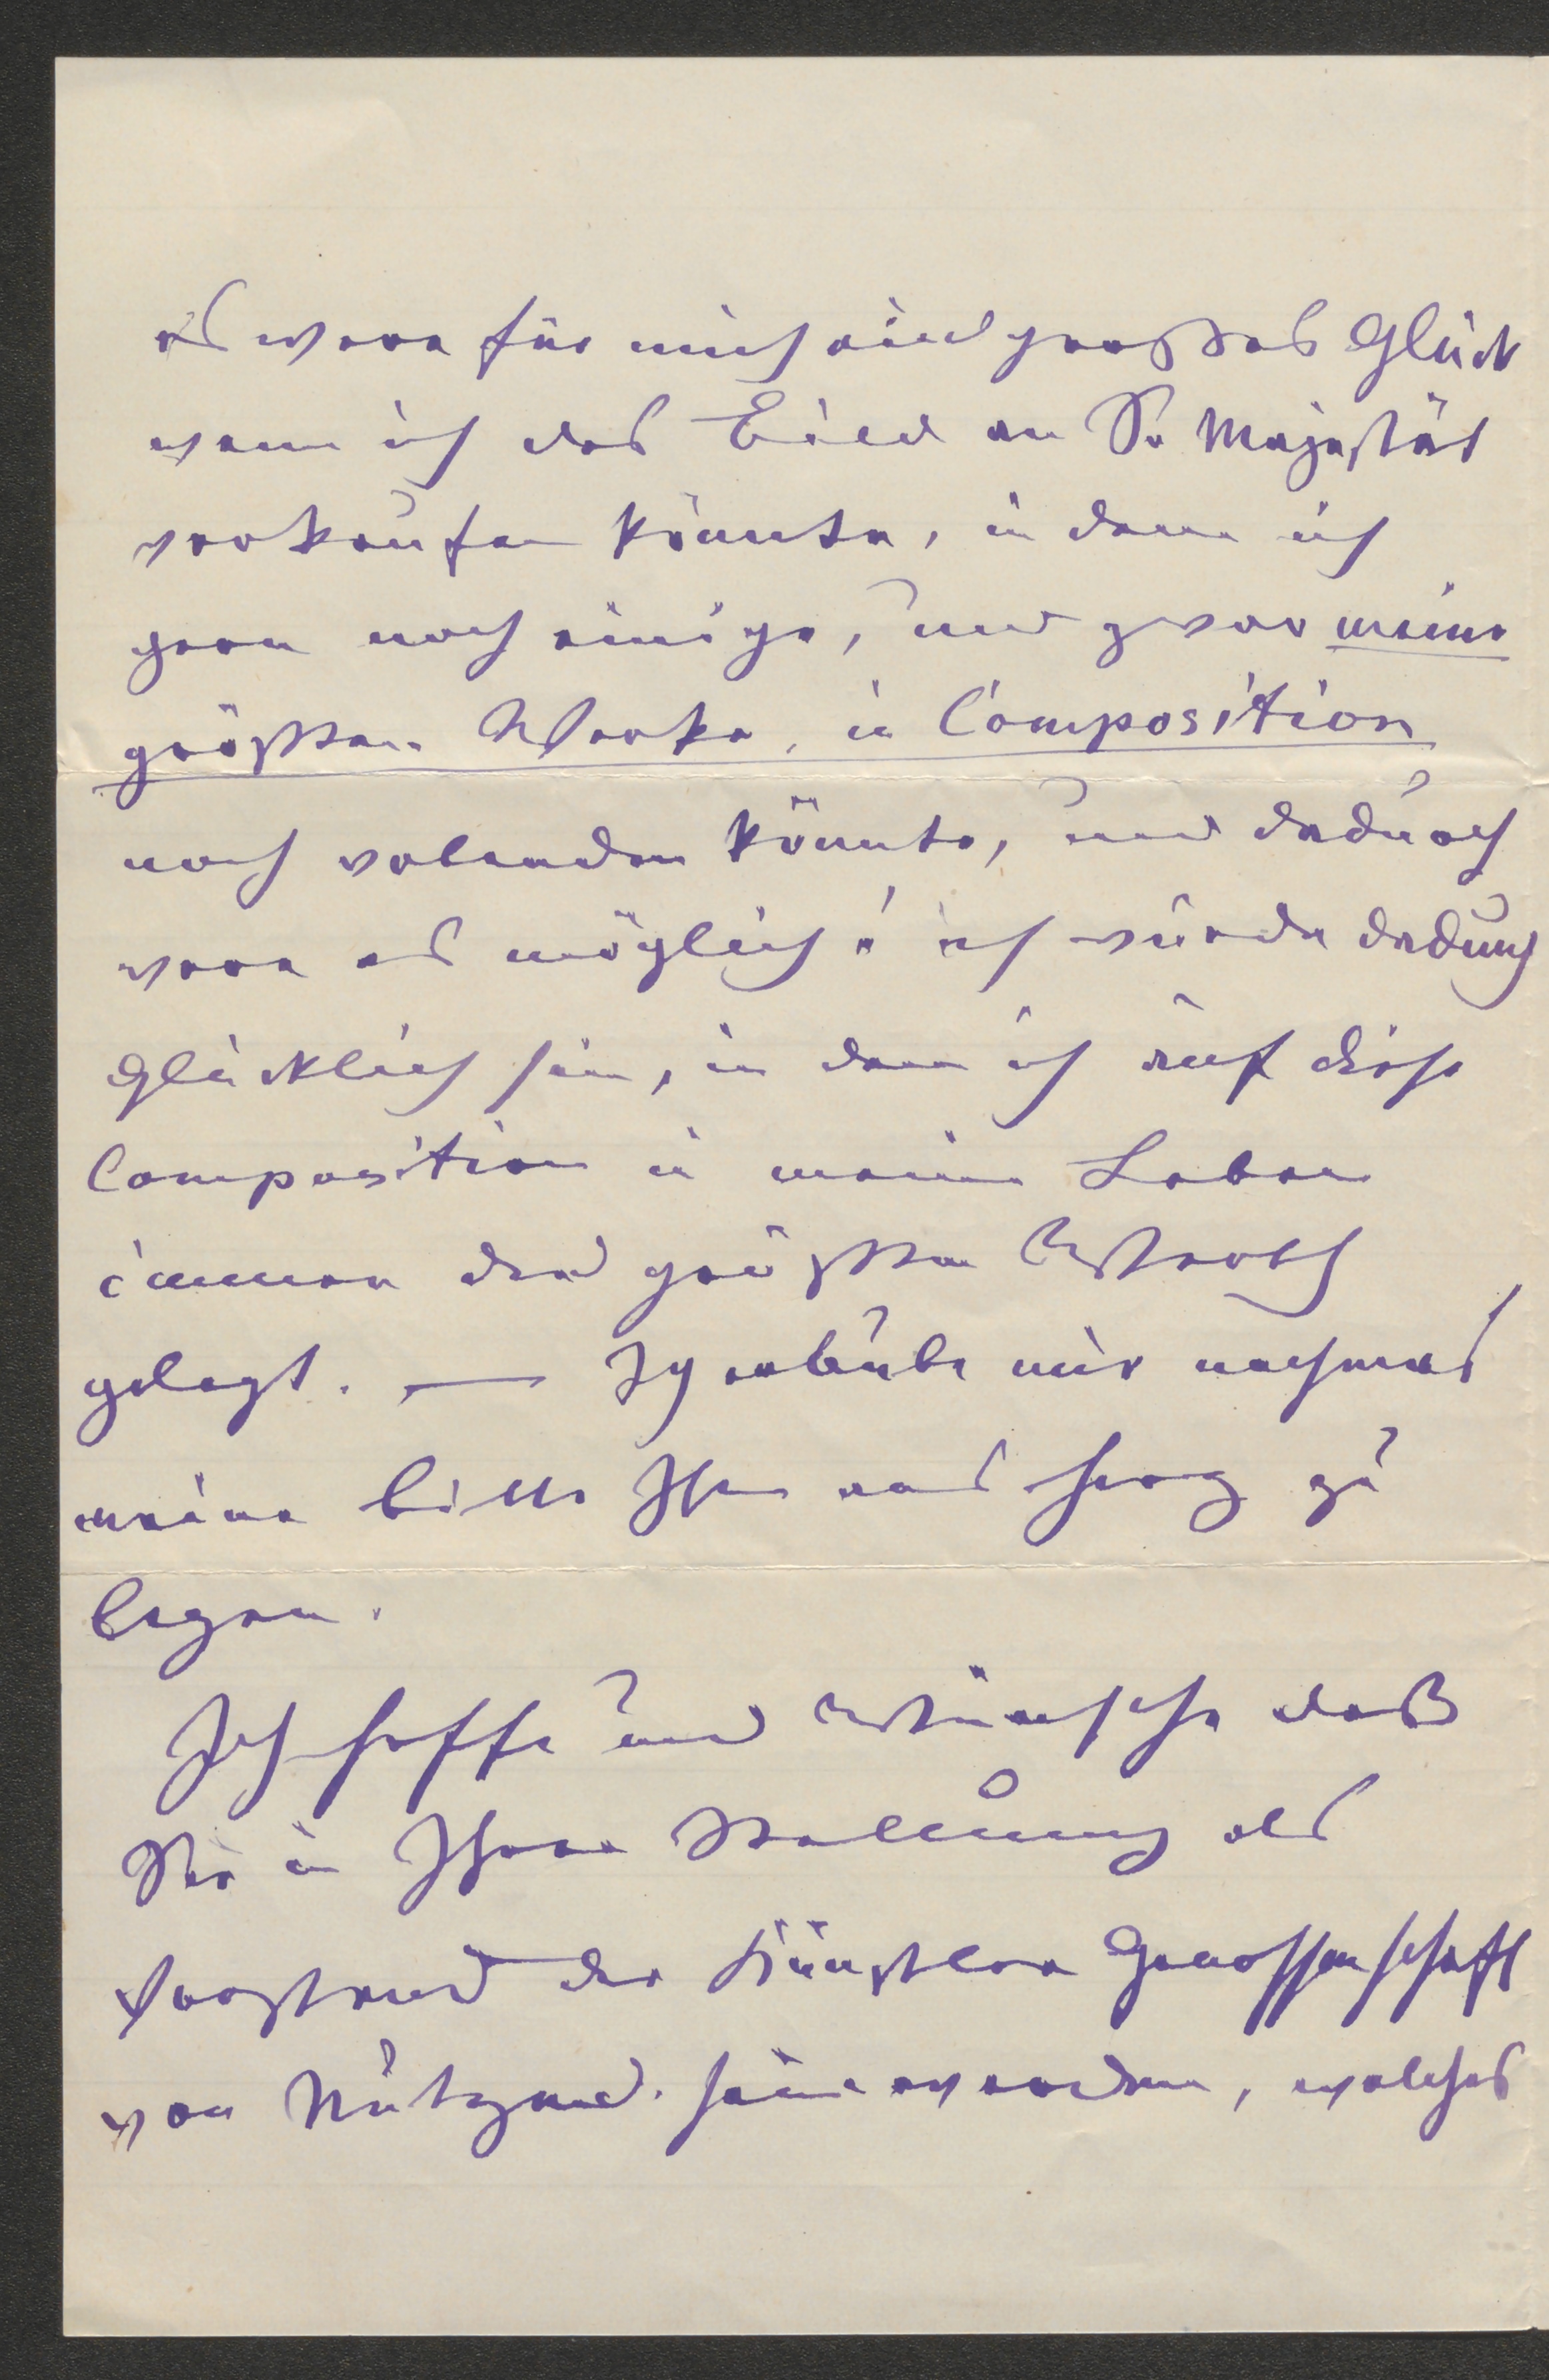 es were für mich eines großes Glück
wenn ich das Bild an Se Majestät
verkaufen könnte, in dem ich
gern noch einige, und zwar meine
größten Werke, in Composition
noch volenden könnte, und dadurch
were es möglich! ich würde dadurch
Glücklich sein, in dem ich auf diese
Composition in mein Leben
immer den größten Werth
gelegt. — Ich erlaube mir nochmals
meine bitte Ihnen ans Herz zu
legen.
Ich hoffe und Wünsche daß
Sie in Ihrer Stellung als
Vorstand der Künstler Genossenschaft
von Nutzen sein werden, welches